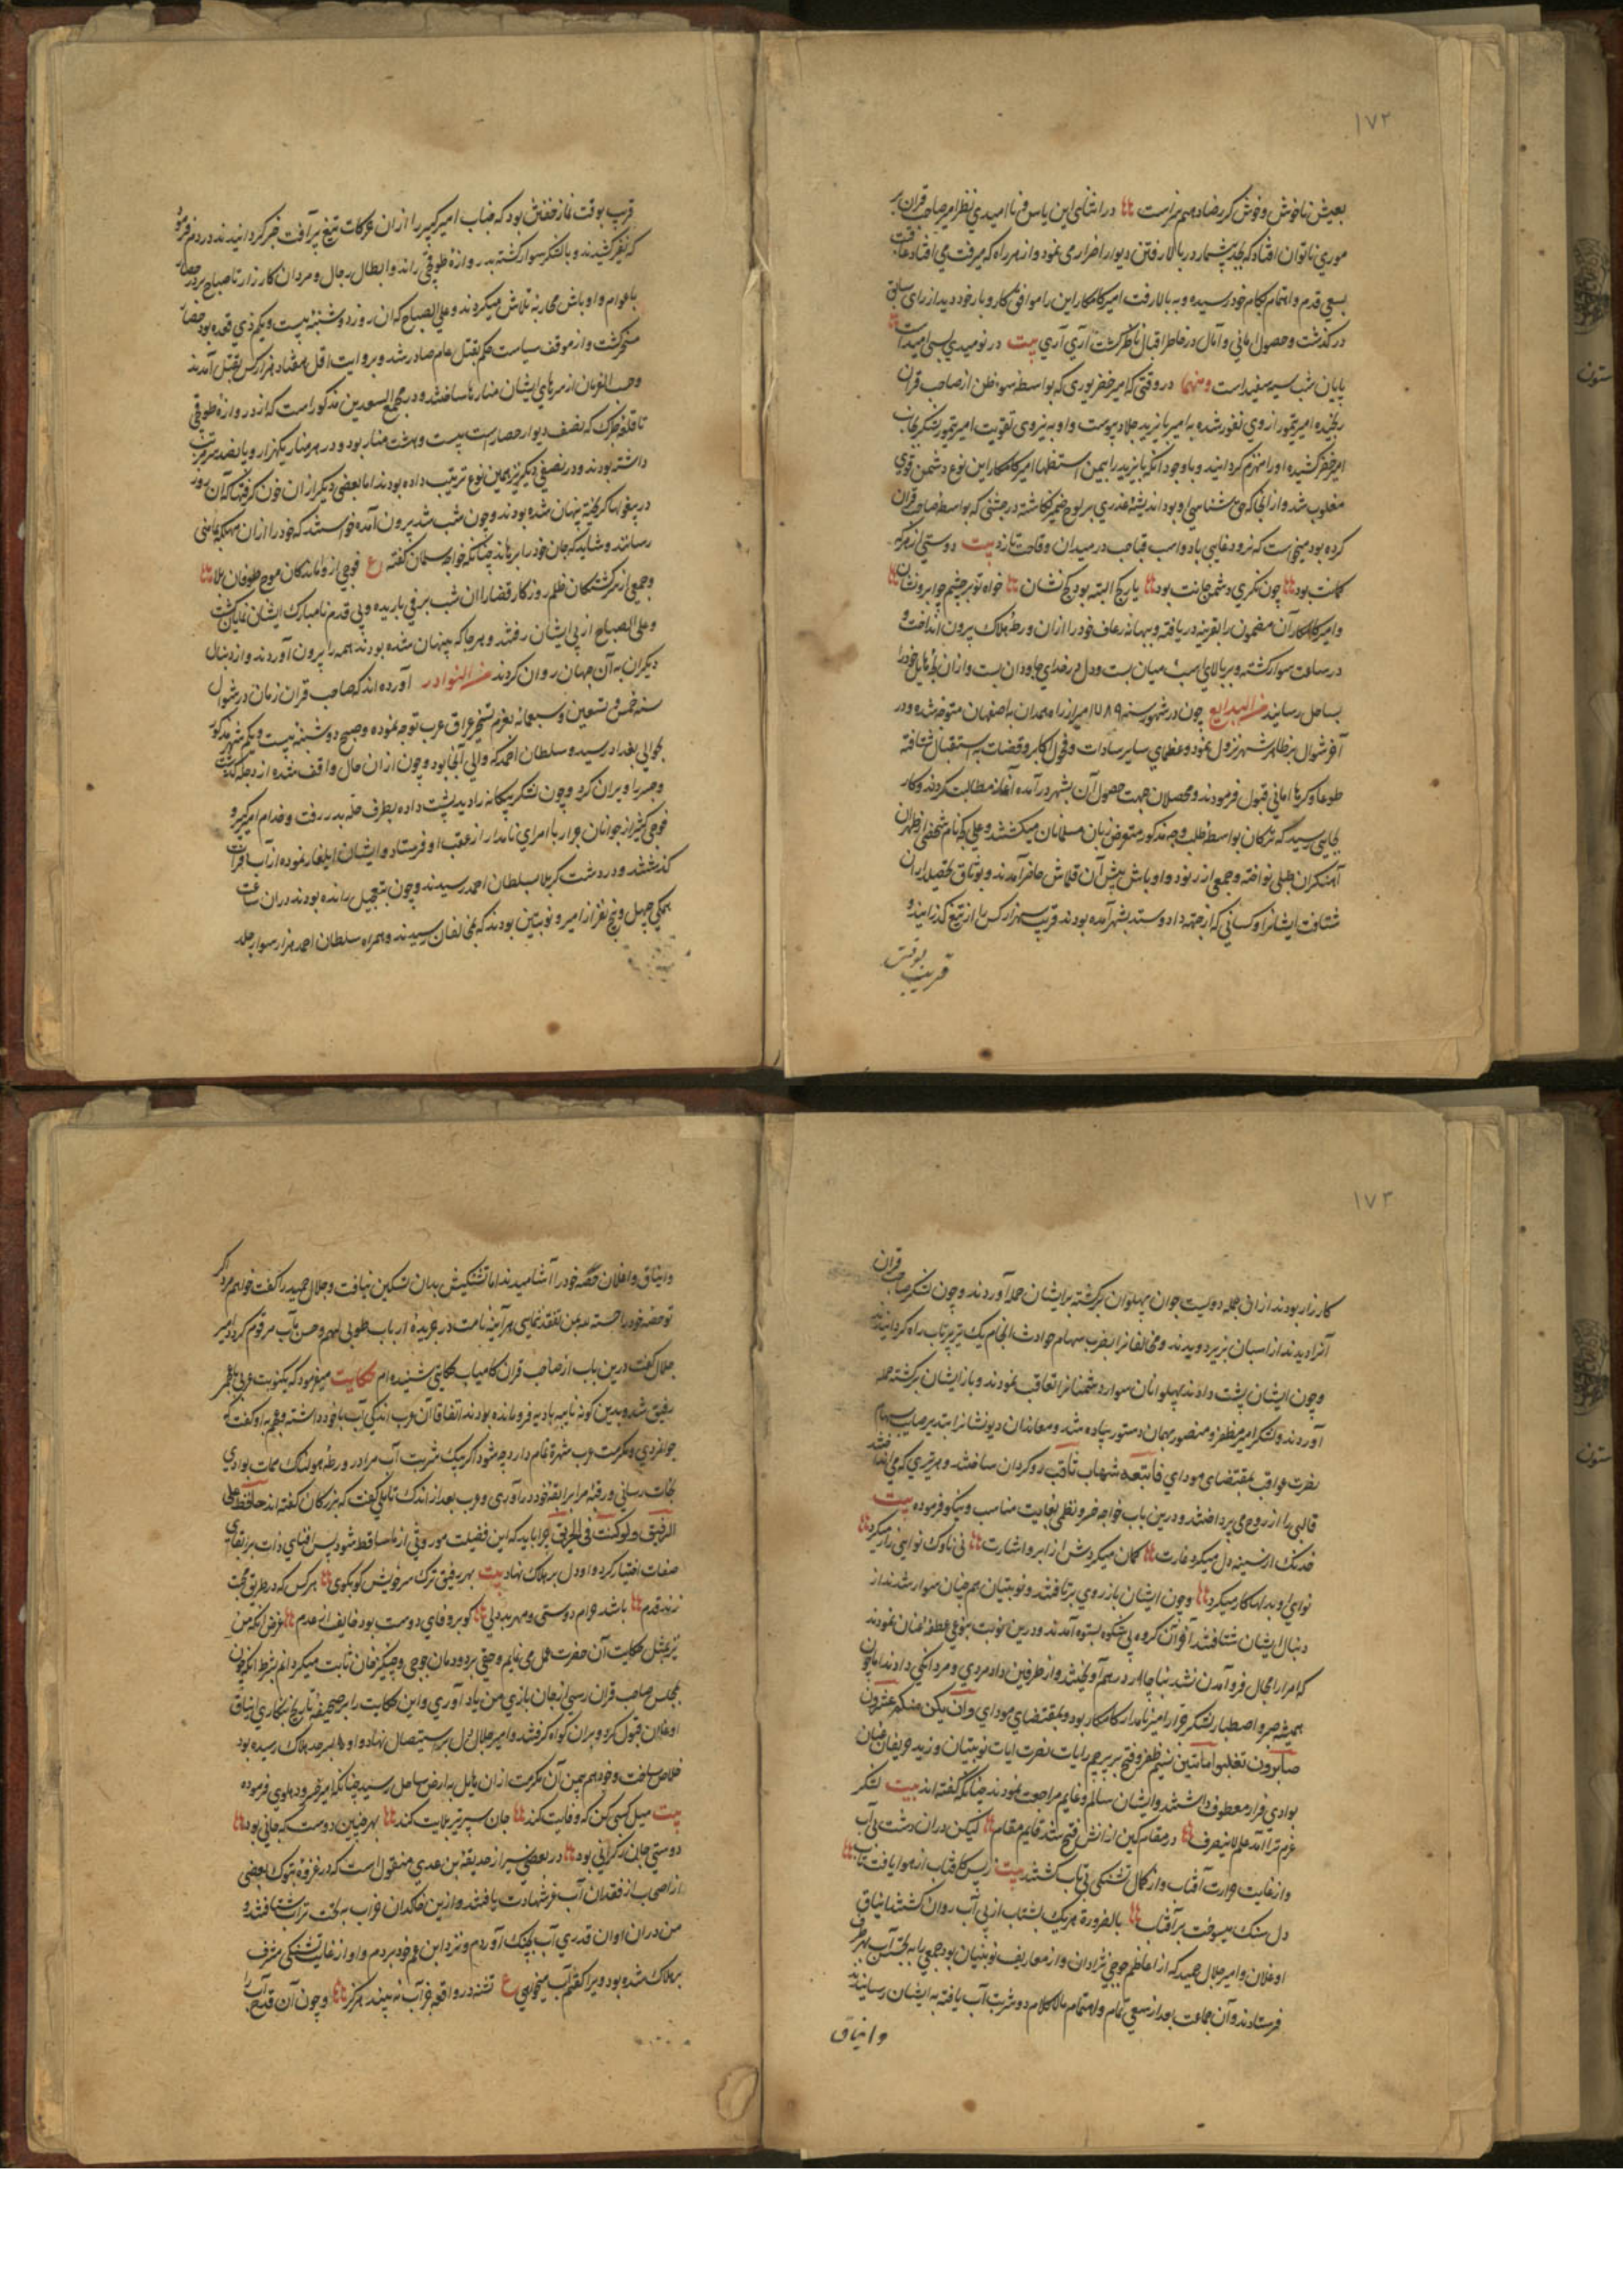 ۱۷۲
بعیش ناخوش و خوش کر رضا دهیم سزاست در اثنای این یاس و ناامیدی نظر امیر صاحب قران بر
موری ناتوان افتاد که بجد بیشمار در بالا رفتن دیوار اضراری می نمود و از هر راه که میرفت می افتاد عاقبت
بسعی قدم و اهتمام بکام خود رسیده و به بالا رفت امیر کامکار این را موافق کار و بار خود دید از رای سابق
در گذشت و حصول امانی و آمال در خاطر اقبال ناظر گشت آری آری بیت در نومیدی بسی امیدست
پایان شب سیه سفیدست و منها در وقتی که امیر خضر یوری که بواسطه سوء ظن از صاحب قران
رنجیده امیر تیمور از وی نفور شده به امیر بایزید جلایر پیوست و او به نیروی تقویت امیر تیمور لشکر بجانب
امیر خضر کشیده او را منهزم گردانید و با وجود آنکه بایزید را بیمن استظهار امیر کامکار این نوع دشمن قوی
مغلوب شد و از انجا که حق شناسی او بود اندیشه غدری بر لوح ضمیر نگاشته در جشنی که بواسطه صاحب قران
کرده بود میخواست که نرد دغایی بازد و اسب قباحت در میدان وقاحت تازد بیت دوستی از هر که
گمانت بود چون نگری دشمن جانت بود یار کج البته بود کج نشان خواه تو بر چشم چو ابرو نشان
و امیر کامکار آن مضمون را بقرینه دریافته و ببهانه رعاف خود را ازان ورطه هلاک بیرون انداخت و
در ساعت سوار گشته و بر بالای اسب میان بست و دل در خدای جاودان بست و ازان لجه هایل خود را
بساحل رسانید من البدایع چون در شهور سنه ۷۸۹ امیر از راه همدان به اصفهان متوجه شده و در
آخر شوال بر ظاهر شهر نزول نمود و عظمای سایر سادات و فحول اکابر و قضات به استقبال شتافته
طوعا و کرها امانی قبول فرمودند و محصلان جهت حصول آن بشهر در آمده آغاز مطالبت کردند و کار
بجایی رسید که ترکان بواسطه طلب وجه مذکور متعرض زبان مسلمانان میگشتند و علی کجه نام شخصی از طهران
آهنگران طبلی نواخته و جمعی از رنود و اوباش پیش آن قلاش حاضر آمدند و بوثاق محصلداران
شتافت ایشانرا و کسانی که از جهة داد و ستد بشهر آمده بودند قریب سه هزار کس را از تیغ گذرانیدند و
قریب بوقت
قریب بوقت نماز خفتن بود که جناب امیر کبیر را ازان حرکات تیغ بر آفت خبر گردانیدند در دم فرمود
که نفیر کشیدند و با لشکر سوار گشته بدروازه طوقچی راند و ابطال رجال و مردان کارزار تا صباح بر در حصار
با عوام و اوباش محاربه تلاش میکردند و علی الصباح که ان روز دوشنبه بیست و یکم ذی قعده بود حصار
مسخر گشت و از موقف سیاست حکم بقتل عام صادر شد و بروایت اقل هفتاد هزار کس بقتل آمدند
و حسب الفرمان از سرهای ایشان منارها ساختند و در مجمع السعدین مذکور است که از دروازه طوقچی
تا قلعه طبرک که نصف دیوار حصار است بیست و هشت منار بود و در هر منار یکهزار و پانصد سر ترتیب
داشته بودند و در نصفی دیگر نیز همین نوع ترتیب داده بودند اما بعضی دیگر از ان خون گرفتها که آن روز
در بیغولها گریخته پنهان شده بودند و چون شب شد بیرون آمده خواستند که خود را از ان مهلکه بمأمنی
رسانند و شاید که جان خود را برهانند چنانکه خواجه سلمان گفته ع فوجی از واماندگان موج طوفان بلا
و جمعی از سرگشتگان ظلم روزگار قضا را ان شب برفی باریده و پی قدم نامبارک ایشان نمایان گشت
و علی الصباح از پی ایشان رفتند و هر جا که پنهان شده بودند همه را بیرون آوردند و از دنبال
دیگران به آن جهان روان کردند من النوادر آورده اند که صاحب قران زمان در شوال
سنه خمس و تسعین و سبعمائه بعزم تسخیر عراق عرب توجه نموده و صبح دوشنبه بیست و یکم شهر مذکور
بحوالی بغداد رسید و سلطان احمد که والی آنجا بود و چون ازان حال واقف شده از دجله گذشت
و جسر را ویران کرد و چون لشکر بیگانه را دید پشت داده بطرف حله بدر رفت و خدام امیر کبیر و
فوجی کثیر از جوانان جرار با امرای نامدار از عقب او فرستاد و ایشان ایلغار نموده از آب فرات
گذشتند و در دشت کربلا بسلطان احمد رسیدند و چون بتعجیل رانده بودند دران ساعت
همگی چهل و پنج نفر از امیر و نوبتین بودند که بمخالفان رسیدند و همراه سلطان احمد هزار سوار جلد
۱۷۳
کارزار بودند ازان جمله دویست جوان پهلوان برگشته بر ایشان حمله آوردند و چون لشکر صاحب قران
آنرا دیدند از اسبان بزیر دویدند و مخالفانرا بضرب سهام حوادث انجام یک تیر پرتاب راه گردانیدند
و چون ایشان پشت دادند پهلوانان سوار دشمنانرا تعاقب نمودند و باز ایشان برگشته حمله
آوردند و لشکر امیر مظفر و منصور بهمان دستور پیاده شدند و معاندان دیونشانرا بتدبیر صایب سهام
نصرت عواقب بمقتضای مودای فأتبعه شهاب ثاقب رو گردان ساختند و هر تیری که می انداختند
قالبی را از روح می پرداختند و درین باب خواجه خسرو نظمی بغایت مناسب و نیکو فرموده بیت
خدنگ ازسینه دل میکرد غارت کمان میکردش از ابرو اشارت نی ناوک نوایی زار میکرد
نوای او بدلها کار میکرد و چون ایشان باز روی برتافتند و نوبتیان همچنان سوار شدند از
دنبال ایشان شتافتند آخر آن گروه بی شکوه بستوه آمدند و درین نوبت بنوعی عطفه عنان نمودند
که امرا را مجال فرو آمدن نشد بناچار در هم آویختند و از طرفین داد مردی و مردانگی دادند اما چون
همیشه صبر و اصطبار لشکر جرار امیر نامدار کامکار بود و بمقتضای مودای وان یکن منکم عشرون
صابرون تغلبوا مأتین نسیم ظفر و فتح بر پرچم رایات نصرت ایات نوبتیان وزید حریفان عنان
بوادی فرار معطوف داشتند و ایشان سالم و غانم مراجعت نمودند چنانکه گفته اند بیت لشکر
عزم ترا آمد علم لا ینصرف در مقام کین ازانش فتح شد قایم مقام لیکن دران دشت بی آب
و از غایت حرارت آفتاب و از کمال تشنگی بی تاب گشتند بیت ز پس کافتاب از هوا یافت تاب
دل سنگ میسوخت بر آفتاب بالضرورة هریک بشتاب از پی آب روان گشتند اینان
اوغلان و امیر جلال حمید که از اعاظم جوجی نژادان و از معاریف نوبتیان بود جمعی را به جستن آب بهر طرف
فرستادند و آن جماعت بعد از سعی تمام و اهتمام مالاکلام دو شربت آب یافته به ایشان رسانیدند
و اینان
و اینان اوغلان حصه خود را آشامیدند اما تشنگیش بدان تسکین نیافت و جلال حمید را گفت خواهم مرد اگر
تو حصه خود را حسبة لله بمن تفقد نمایی هر آینه نامت در جریده ارباب طوبی لهم و حسن مآب مرقوم گردد امیر
جلال گفت درین باب از صاحب قران کامیاب حکایتی شنیده ام حکایت میفرمود که یکنوبت عربی با عجمی
رفیق شد و بدین گونه در بادیه فرو مانده بودند اتفاقا آن عرب اندکی آب با خود داشته و عجم به او گفت که
جوانمردی و مکرمت عرب شهرة تمام دارد چه شود اگر بیک شربت آب مرا در ورطه هولناک ممات بوادی
نجات رسانی و رقبه مرا بربقه خود در آوری و عرب بعد از اندک تاملی گفت که بزرگان گفته اند حافظ علی
الرفیق ولو کنت فی الحریق چرا باید که این فضیلت موروثی از ما ساقط شود پس فنای ذات بر بقای
صفات اختیار کرد و او دل بر هلاک نهاد بیت بهر رفیق ترک سر خویش گو بگوی هر کس که در طریق محبت
زند قدم باشد حرام دوستی و مهر بد دلی کو بر وفای دوست بود خایف از عدم غرض انکه من
نیز بمثل حکایت آن حضرت عمل می نمایم و حقی بر دودمان جوجی و چنگیزخان ثابت میگردانم بشرط انکه چون
بمجلس صاحب قران رسی از جان بازی من یاد آوری و این حکایت را بر صحیفه تاریخ بنگاری اینان
اوغلان قبول کرد و بران گواه گرفتند و امیر جلال دل بر استیصال نهاد و او را که بسرحد هلاک رسیده بود
خلاص ساخت و خود هم بیمن آن مکرمت ازان هایل به ارض ساحل رسید چنانکه امیر خسرو دهلوی فرموده
بیت میل کسی کن که وفایت کند جان سپر تیر بلایت کند بهر چنین دوست که جانی بود
دوستی جان ز گرانی بود در بعضی سیر از حذیفه بن عدی منقول است که در غزوه تبوک بعضی
از اصحاب از فقدان آب غر شهادت یافتند و ازین خاکدان خراب به تخت تراب شتافتند و
من دران اوان قدری آب بچنگ آوردم و نزد ابن عم خود بردم و او از غایت تشنگی مشرف
بر هلاک شده بود ویرا گفتم آب میخواهی ع تشنه در واقعه جز آب نه بیند هرگز و چون آن قدح آب را